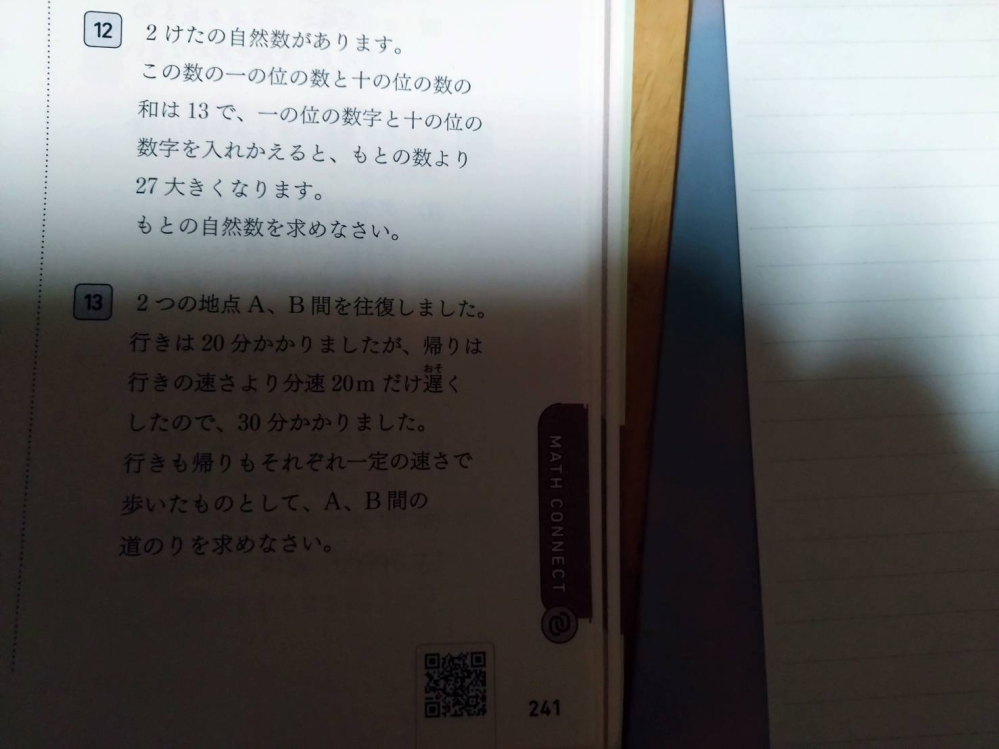 12 2けたの自然数があります。
この数の一の位の数と十の位の数の
和は13で、一の位の数字と十の位の
数字を入れかえると、もとの数より
27大きくなります。
もとの自然数を求めなさい。
13 2つの地点A、B間を往復しました。
行きは20分かかりましたが、帰りは
おそ
行きの速さより分速20mだけ遅く
したので、30分かかりました。
行きも帰りもそれぞれ一定の速さで
歩いたものとして、A、B間の
道のりを求めなさい。
MATH CONNECT
241